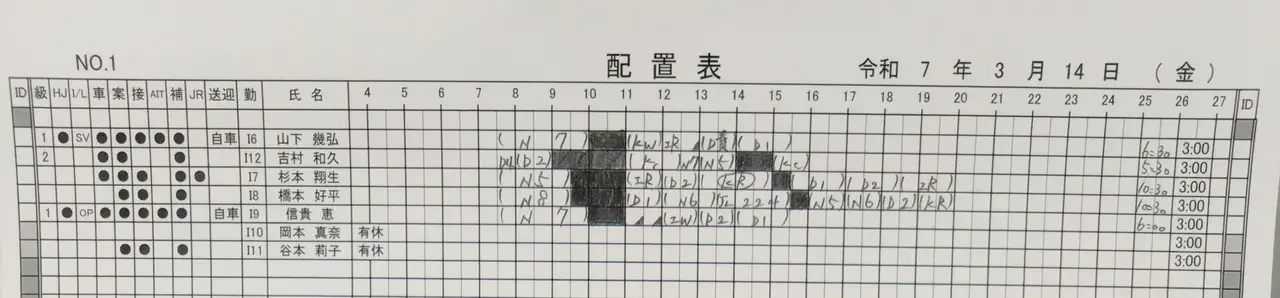 NO.1 配置表 令和 7 年 3 月 14 日 (金)
ID 級 HJ I/L 車 案 接 AIT 補 JR 送迎 勤 氏 名 4 5 6 7 8 9 10 11 12 13 14 15 16 17 18 19 20 21 22 23 24 25 26 27 ID
1 ● SV ● ● ● ● ● 自車 I6 山下 幾弘 ( N 7 ) (KW) IR ( D1 ) 6=30 3:00
2 ● ● ● I12 吉村 和久 (D2) N7 (N5) 5=30 3:00
● ● ● ● ● I7 杉本 翔生 ( N5 ) (IR) (D2) (KR) (D1) (D2) ( IR) 10=30 3:00
● ● ● I8 橋本 好平 ( N8 ) (D1) (N6) 224 (N5) (N6) (D2) (KR) 10=30 3:00
1 ● OP ● ● ● ● ● 自車 I9 信貴 恵 ( N 7 ) (IW) (D2) ( D1 ) 6=00 3:00
I10 岡本 真奈 有休 3:00
● ● ● I11 谷本 莉子 有休 3:00